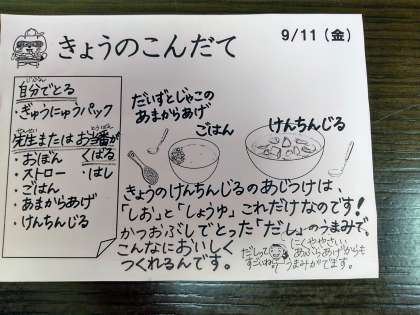 きょうのこんだて
9/11(金)
じぶん
自分でとる
・ぎゅうにゅうパック
せんせい
とうばん
先生またはお当番が
くばる
・おぼん
・ストロー
・はし
・ごはん
・あまからあげ
・けんちんじる
だいずとじゃこの
あまからあげ
ごはん
けんちんじる
きょうのけんちんじるのあじつけは、
「しお」と「しょうゆ」これだけなのです!
かつおぶしでとった「だし」のうまみで、
こんなにおいしく
つくれるんです。
だしって
すごいね
にくややさい、
あぶらあげからも
うまみがでます。